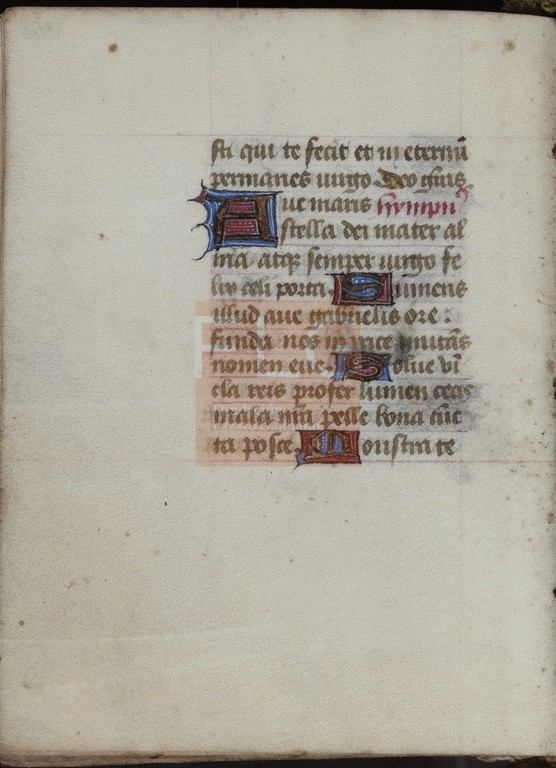 sti qui te fecit et in eternū
permanes uirgo Deo grās
Aue maris hympnꝰ
stella dei mater al
ma atqꝫ semper uirgo fe
lix celi porta. Sumens
illud aue gabrielis ore:
funda nos in pace mutās
nomen eue. Solue vī
cla reis profer lumen cecis
mala nr̄a pelle bona cūc
ta posce. Monstra te